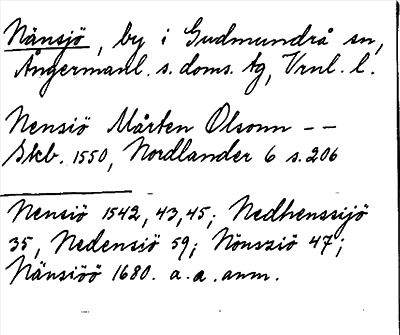 Nänsjö, by i Gudmundrå sn,
Ångermanl. s. doms. tg, Vrnl. l.
Nensiö Mårten Olsonn --
Skb. 1550, Nordlander 6 s. 206
Nensiö 1542, 43, 45; Nedhenssijö
35, Nedensiö 59; Nönsziö 47;
Nänsiöö 1680. a. a. anm.